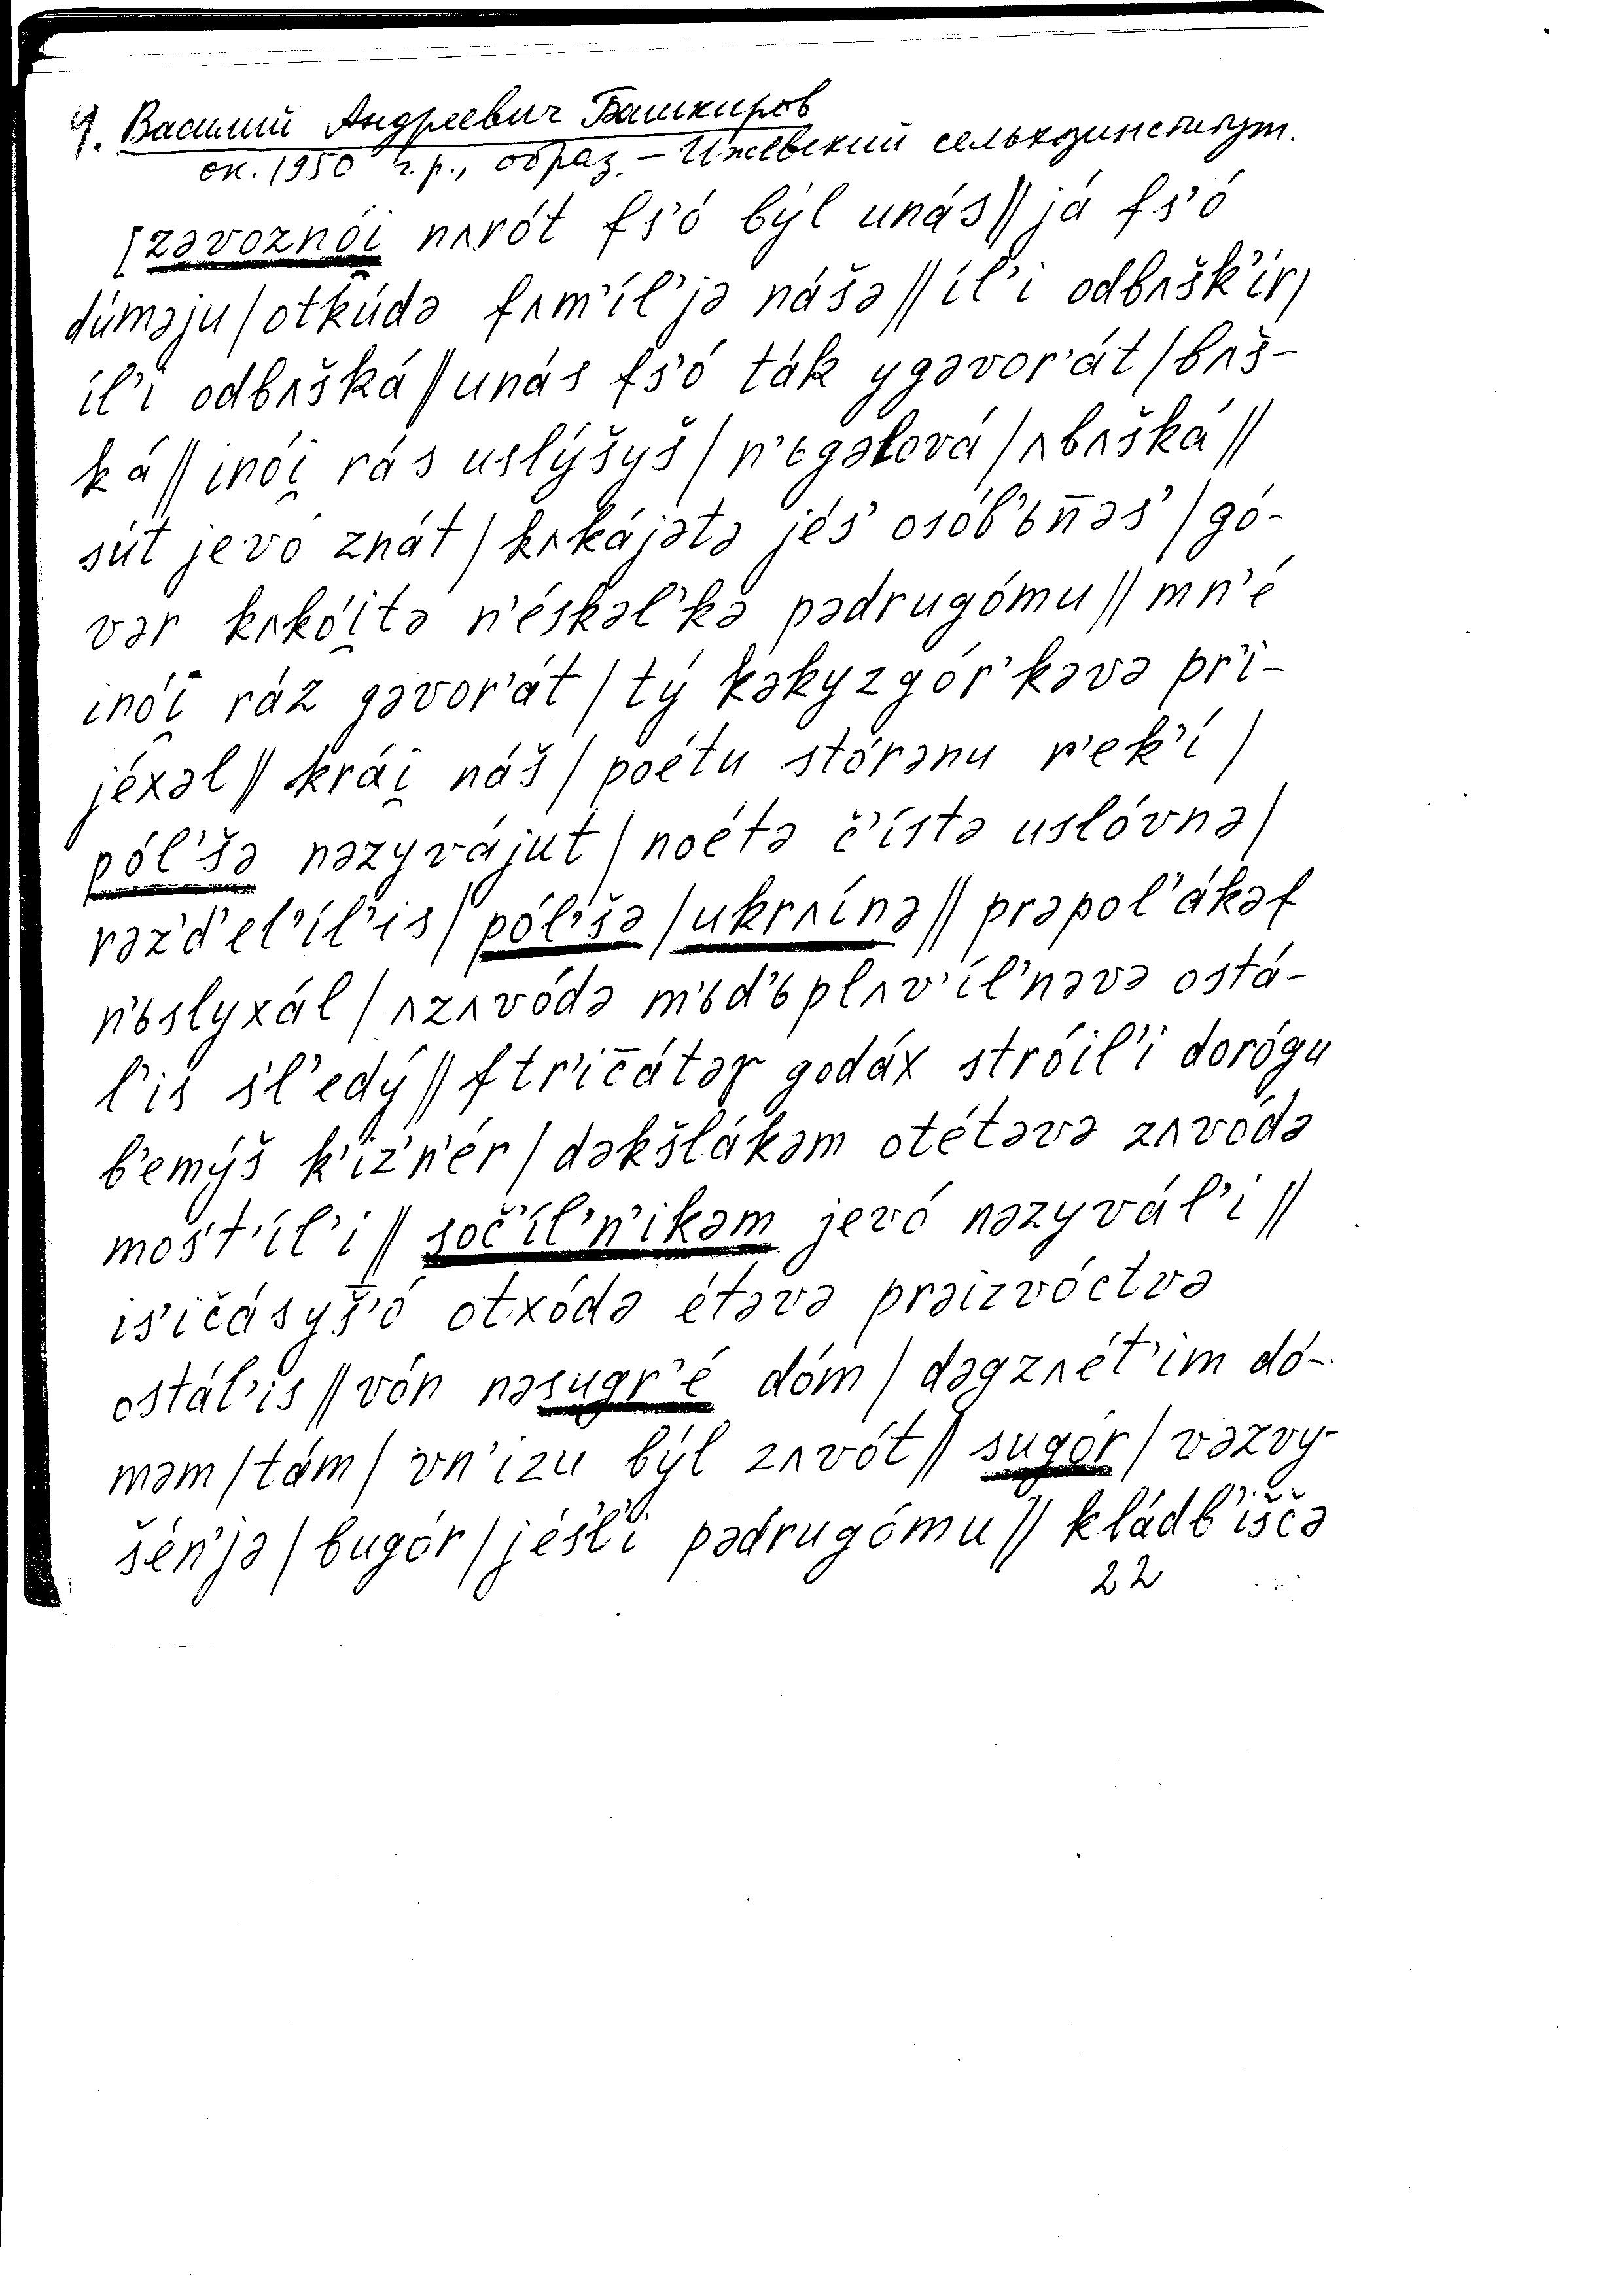 9. Василий Андреевич Башкиров
ок. 1950 г.р., образ. – Ижевский сельхозинститут.
[zəvoznói̯ nʌrót fs’ó býl unás // já fs’ó
dúməju / otkúdə fʌm’íl’jə nášə // íl’i odbʌšk’ír /
íl’i odbʌšká // unás fs’ó ták ygəvor’át / bʌš-
ká // inói̯ rás uslýšyš / n’ьgəlová / ʌbʌšká //
sút jevó znát / kʌkájətə jés’ osób’ьn̄əs’ / gó-
vər kʌkói̯tə n’éskəl’kə pədrugómu // mn’é
inói̯ ráz gəvor’át / tý kəkyzgór’kəvə pr’i-
jéxəl // krái̯ náš / poétu stórənu r’ek’í /
pól’šə nəzyvájut / noétə č’ístə uslóvnə /
rəz’d’el’íl’is / pól’šə / ukrʌínə // prəpol’ákəf
n’ьslyxál / ʌzʌvódə m’ьd’ьplʌv’íl’nəvə ostá-
l’is s’l’edý // ftr’ic̄átər godáx stróil’i dorógu
b’emýš k’iz’n’ér / dəkšlákəm otétəvə zʌvódə
mos’t’íl’i // soč’íl’n’ikəm jevó nəzyvál’i //
is’ičásyš̄’ó otxódə étəvə prəizvóctvə
ostál’is // vón nəsugr’é dóm / dəgzʌét’im dó-
məm / tám / vn’izú býl zʌvót // sugór / vəzvy-
šén’jə / bugór / jés’l’i pədrugómu // kládb’išč’ə
22